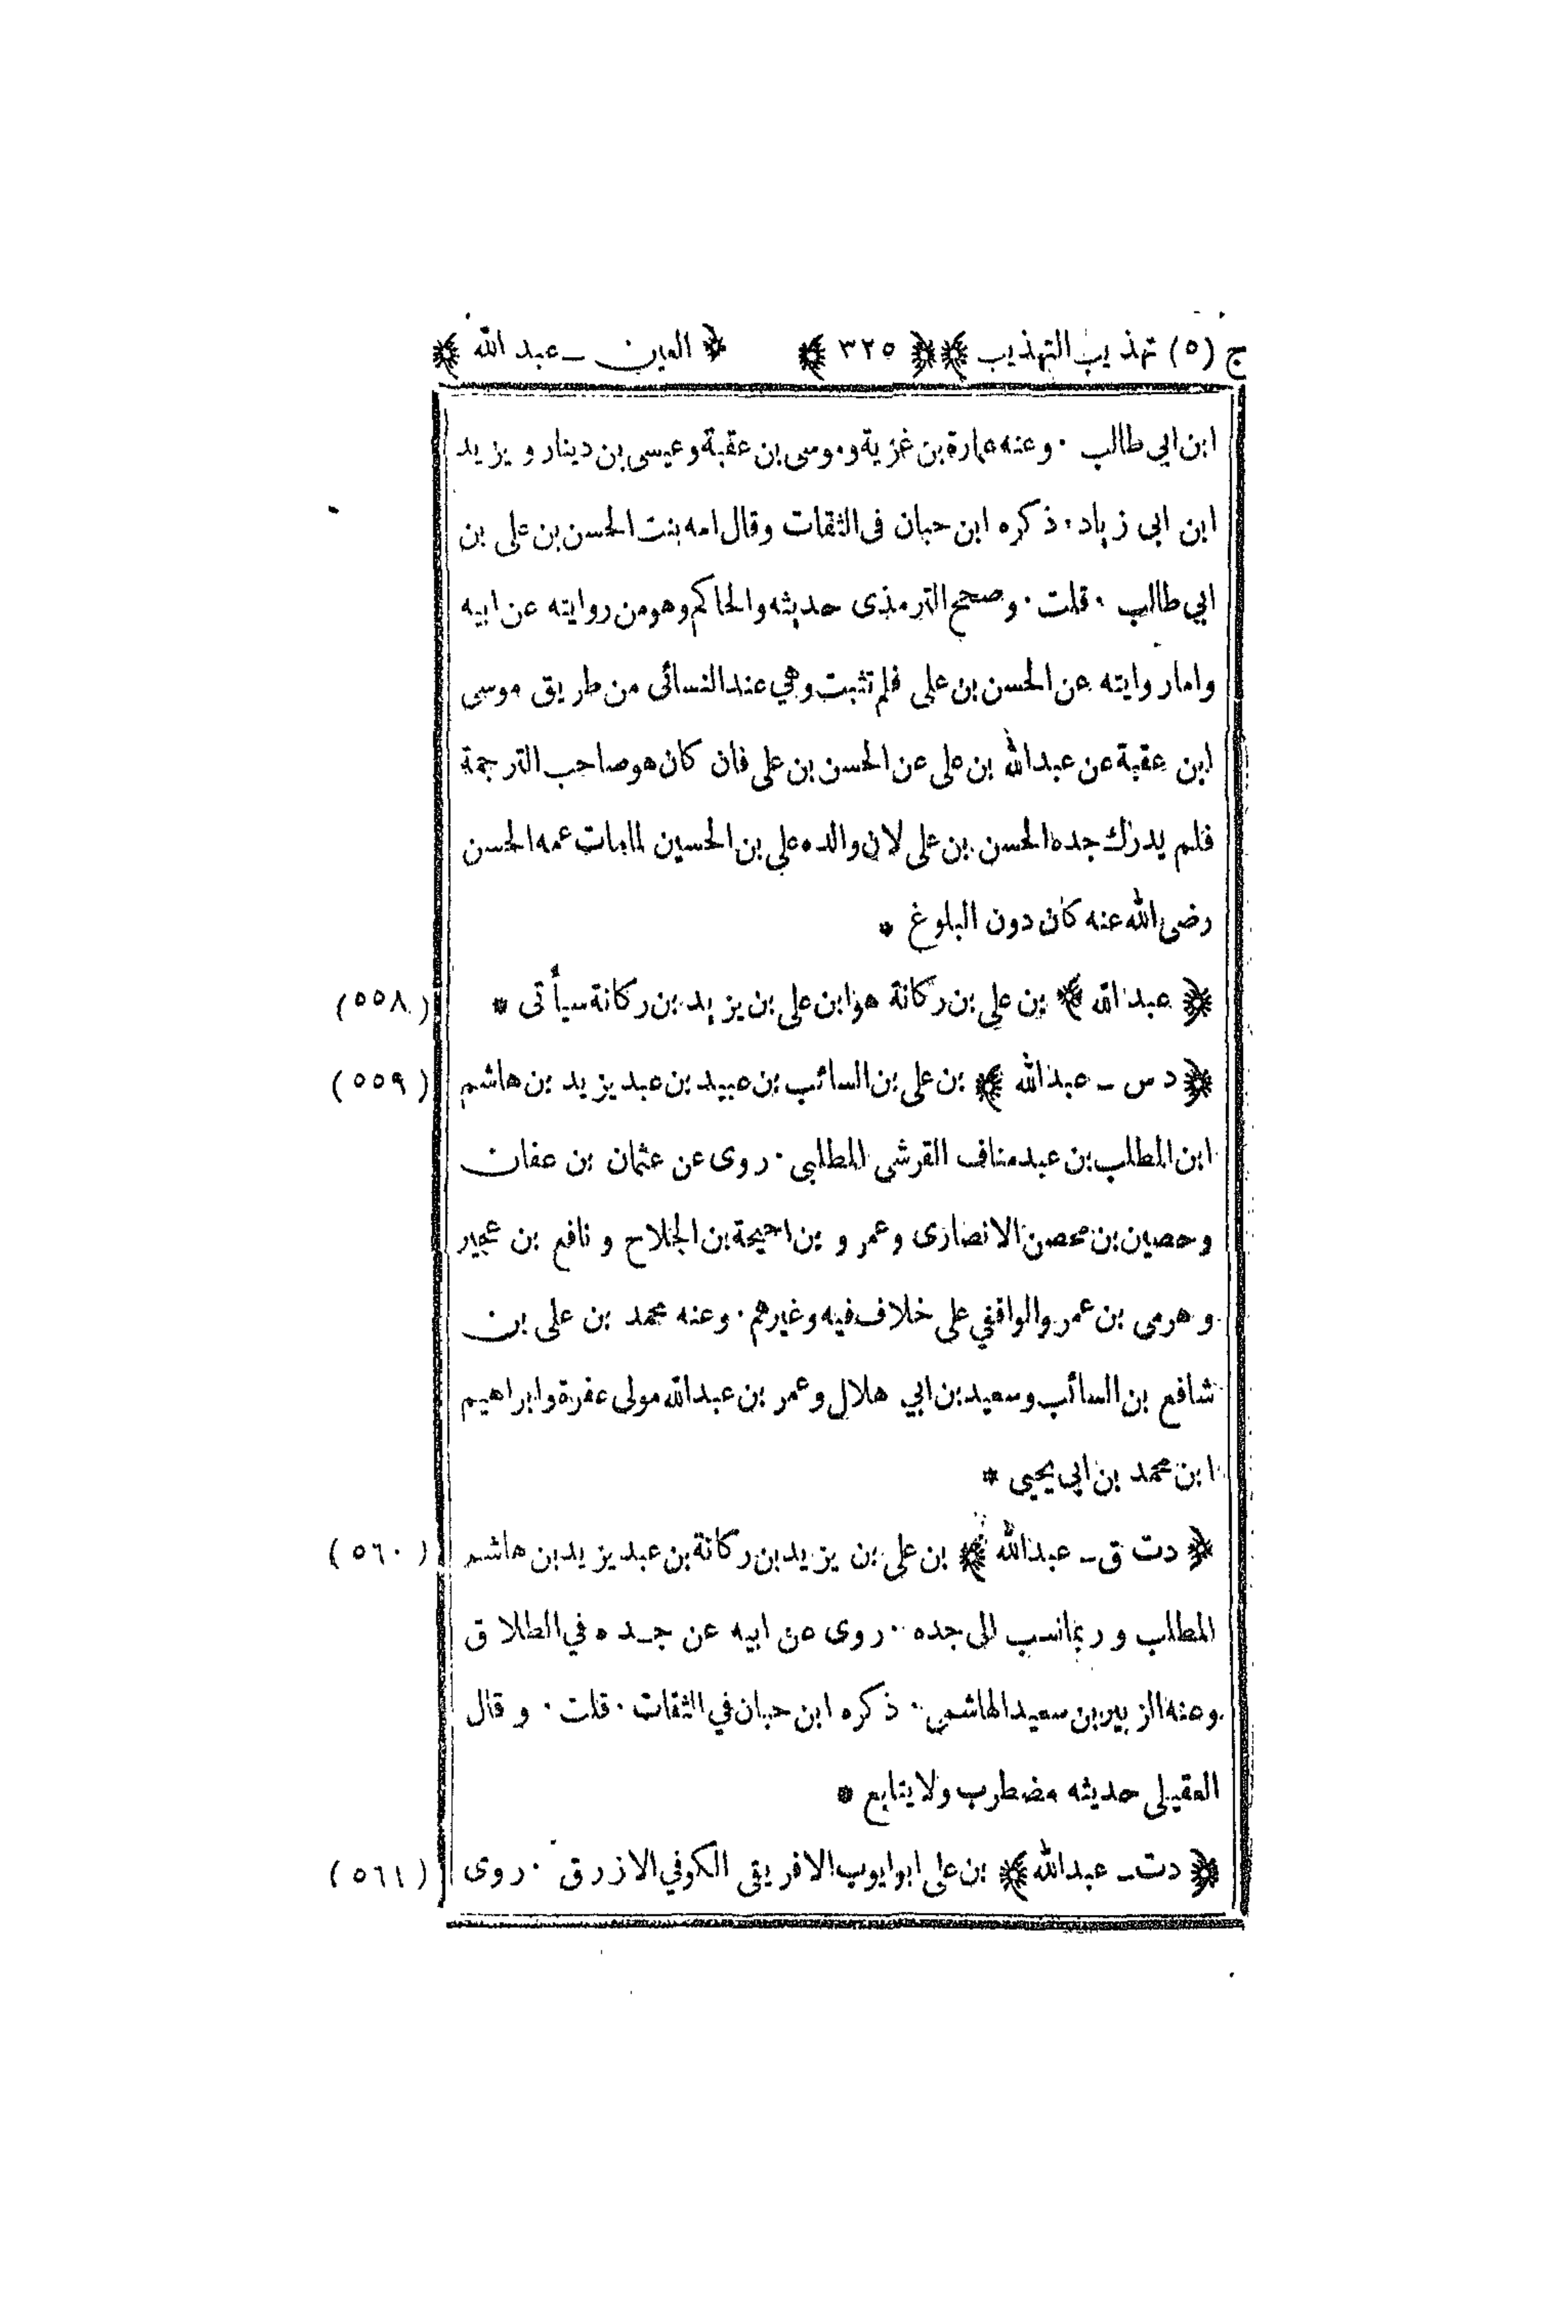 ج (٥) تهذيب التهذيب ﴾ ﴿ ٣٢٥ ﴾ ﴿ العين ـ عبد الله ﴾
ابن ابي طالب ٠ وعنه عمارة بن غزية وموسى بن عقبة وعيسى بن دينار ويزيد
ابن ابى زياد ٠ ذكره ابن حبان فى الثقات وقال امه بنت الحسن بن على بن
ابي طالب ٠ قلت ٠ وصحح الترمذى حديثه والحاكم وهو من روايته عن ابيه
واما روايته عن الحسن بن على فلم تثبت وهي عند النسائى من طريق موسى
ابن عقبة عن عبدالله بن على عن الحسن بن على فان كان هو صاحب الترجمة
فلم يدرك جده الحسن بن على لان والده على بن الحسين لما مات عمه الحسن
رضى الله عنه كان دون البلوغ *
﴿ عبد الله ﴾ بن على بن ركانة هو ابن على بن يزيد بن ركانة سيأتى * (٥٥٨)
﴿ د س ـ عبد الله ﴾ بن على بن السائب بن عبيد بن عبد يزيد بن هاشم (٥٥٩)
ابن المطلب بن عبد مناف القرشى المطلبى ٠ روى عن عثمان بن عفان
وحصين بن محصن الانصارى وعمرو بن احيحة بن الجلاح ونافع بن عجير
وهرمى بن عمرو الواقفي على خلاف فيه وغيرهم ٠ وعنه محمد بن على بن
شافع بن السائب وسعيد بن ابي هلال وعمر بن عبدالله مولى عفرة وابراهيم
ابن محمد بن ابى يحيى *
﴿ د ت ق ـ عبدالله ﴾ بن على بن يزيد بن ركانة بن عبد يزيد بن هاشم (٥٦٠)
المطلب وربما نسب الى جده ٠ روى عن ابيه عن جده في الطلاق
وعنه الزبير بن سعيد الهاشمى ٠ ذكره ابن حبان في الثقات ٠ قلت ٠ وقال
العقيلى حديثه مضطرب ولا يتابع *
﴿ د ت ـ عبدالله ﴾ بن على ابو ايوب الافريقى الكوفي الازرق ٠ روى (٥٦١)